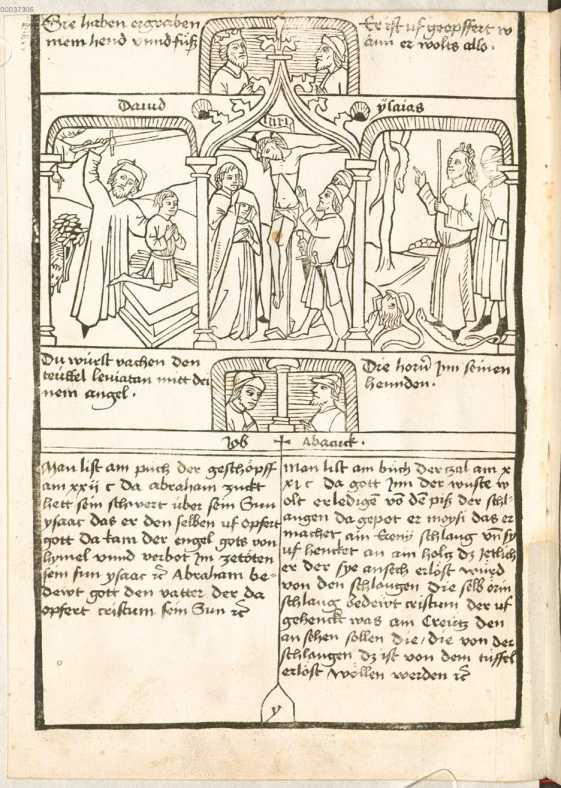 00037306
Sie haben ergraben
mein hend vnnd füß
Er ist uf geopffert w
ann er wolts allso.
Dauid
ysaias
INRI
Du würst vachen den
teuffel leuiatan mitt dei
nem angel.
Die horn Jnn seinen
hennden.
Job
Abacuck.
Man list am puch der geschöpff
am xxij c da abraham zuckt
hett sein schwert über sein Sun
ysaac das er den selben uf opfert
gott da kam der engel gots von
hymel vnnd verbot Jm zetöten
sein sun ysaac rc Abraham be-
deiwt gott den vatter der da
opfert cristum sein Sun rc
Man list am buch der zal am x
xj c da gott Jnn der wuste w
olt erledigē vō dē piß der schl-
angen da gepot er moysi das er
machet ain schlang vn̄ sy
uf hencket an ain holtz dz Jetlich
er der sye ansech erlöst wurd
von den schlangen die selb erin
schlang bedeiwt cristum der uf
gehenckt was am Creütz den
an sehen sollen die/die von der
schlangen dz ist von dem tüffel
erlöst wöllen werden rc
y